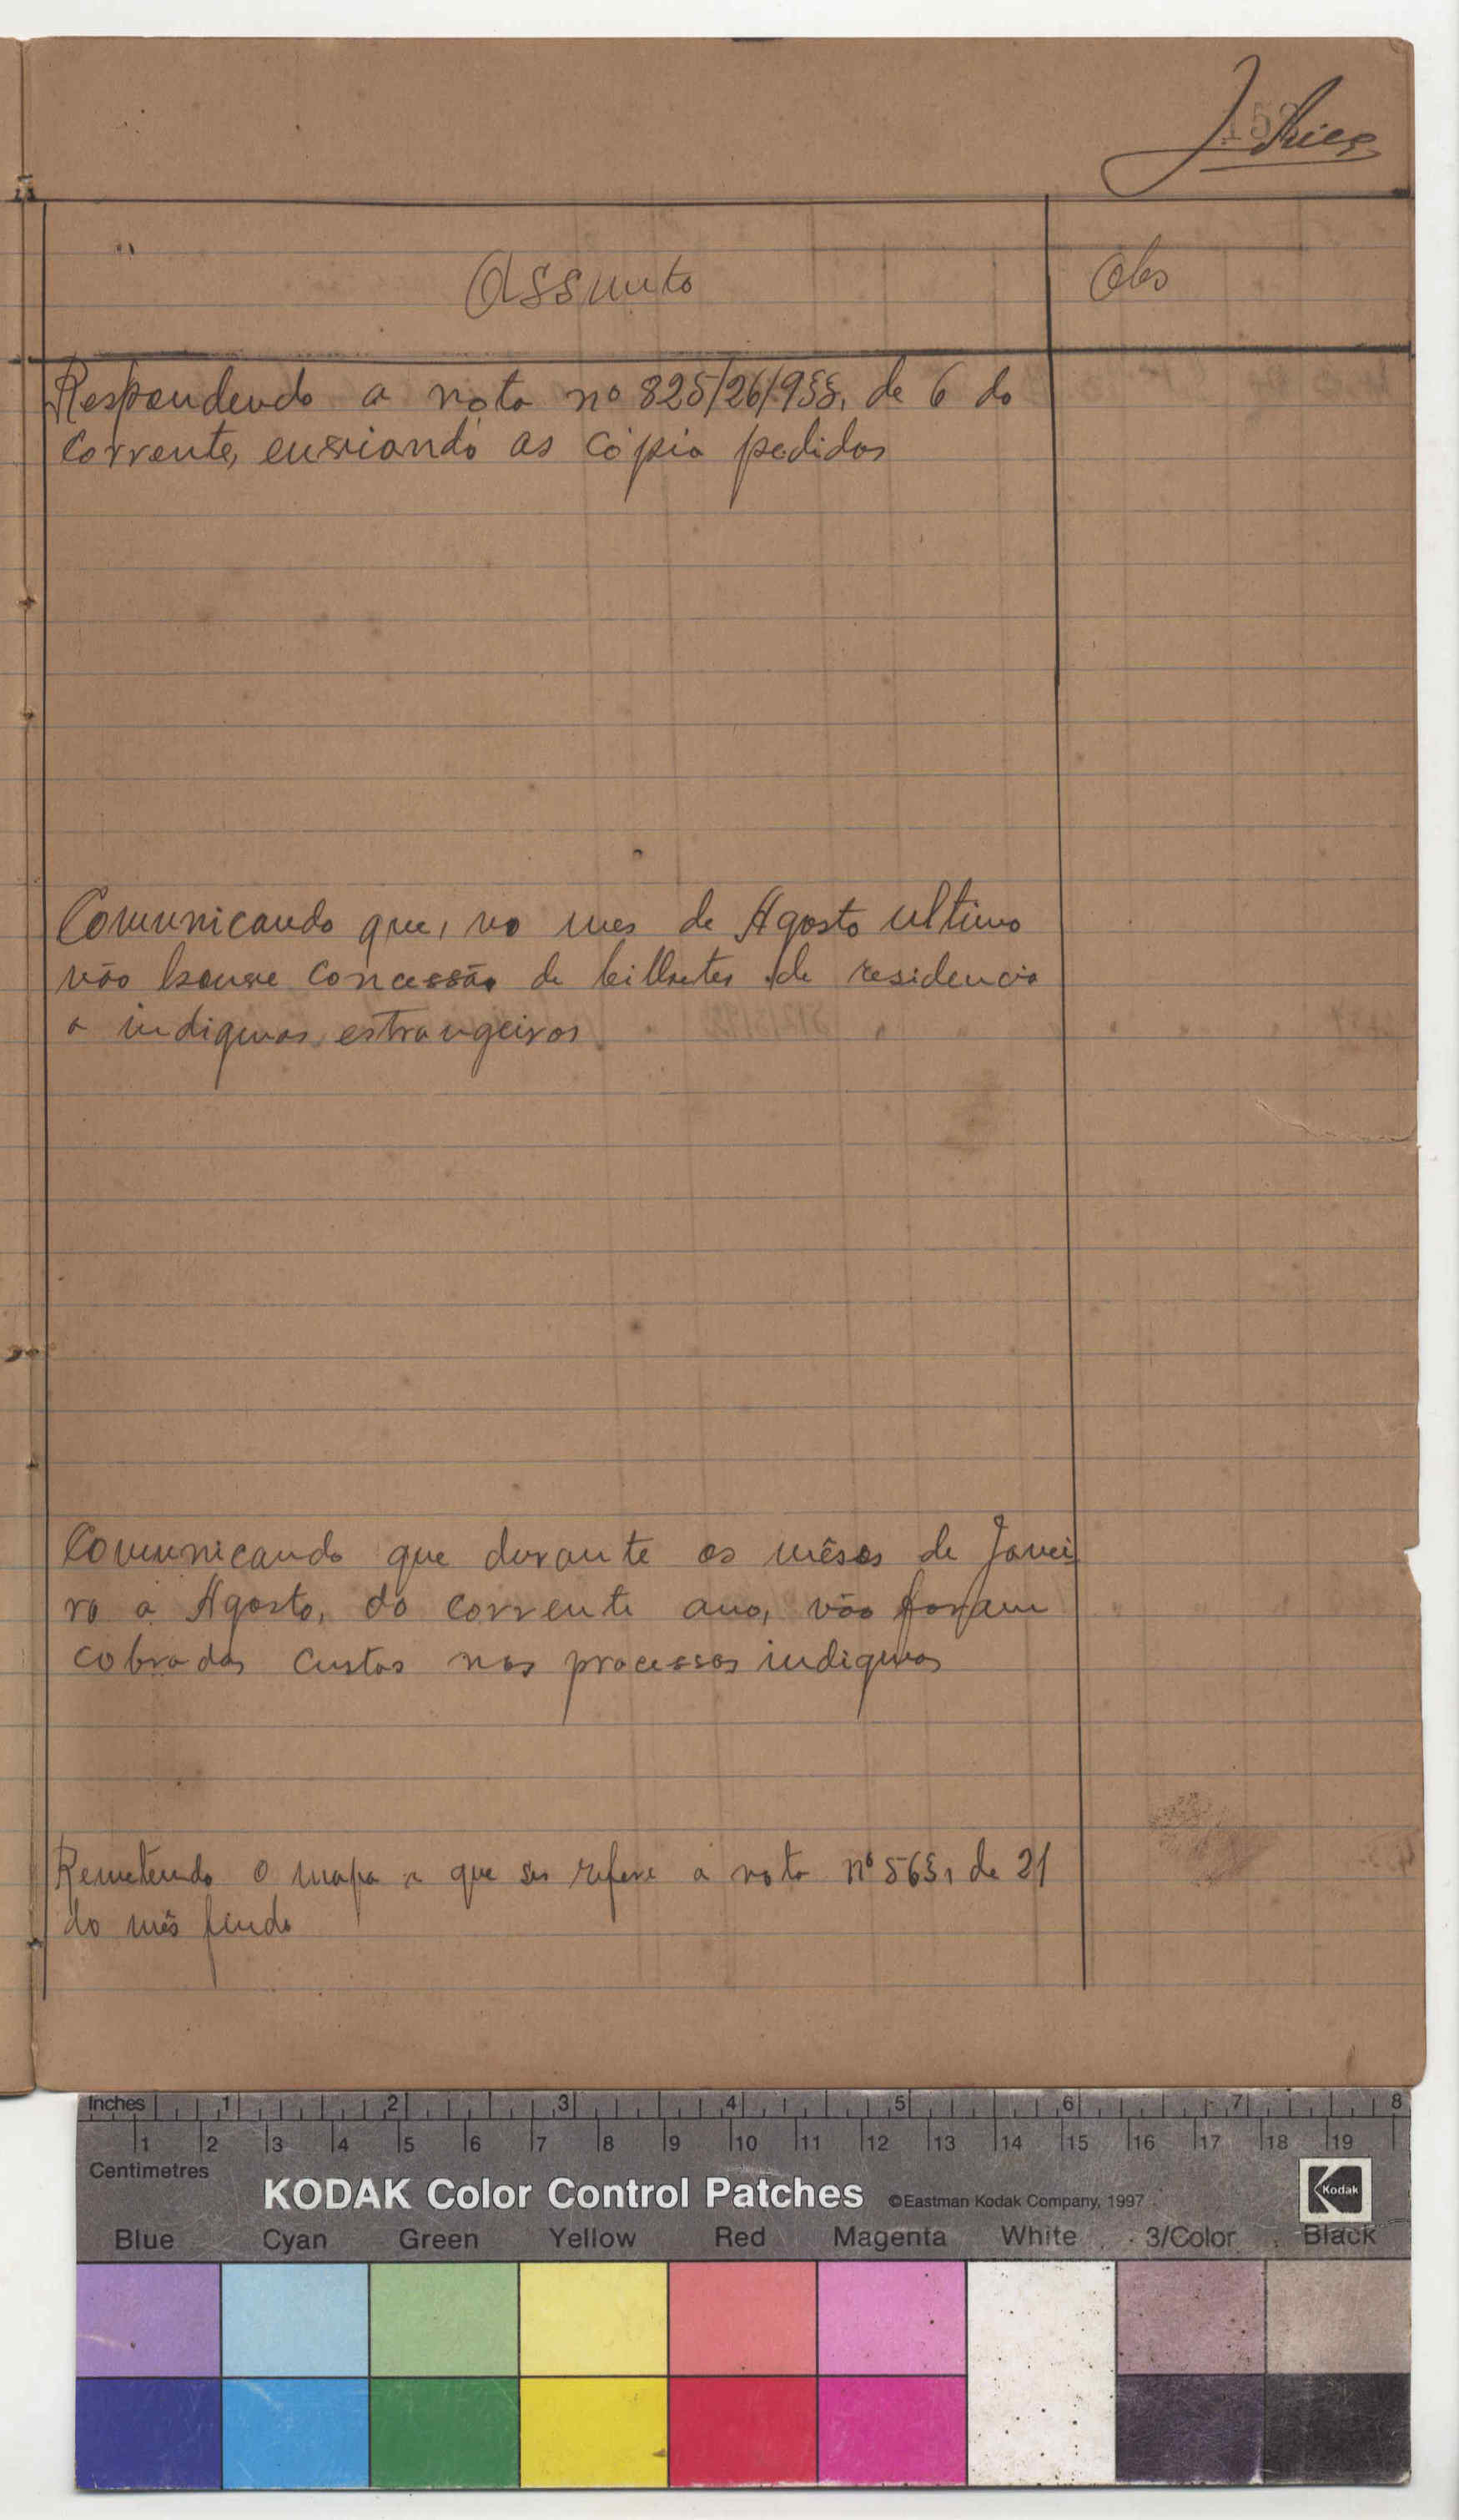 Assunto Obs
Respondendo a nota nº 825/26/955, de 6 do
corrente, enviando as cópia pedidas
Comunicando que, no mes de Agosto ultimo
não houve concessão de bilhetes de residencia
a indigenas estrangeiros
Comunicando que durante os mêses de Janei
ro a Agosto, do corrente ano, não foram
cobradas custas nos processos indigenas
Remetendo o mapa a que se refere a nota nº 565, de 21
do mês findo
Inches 1 2 3 4 5 6 7 8
1 2 3 4 5 6 7 8 9 10 11 12 13 14 15 16 17 18 19
Centimetres
KODAK Color Control Patches ©Eastman Kodak Company, 1997 Kodak
Blue Cyan Green Yellow Red Magenta White 3/Color Black